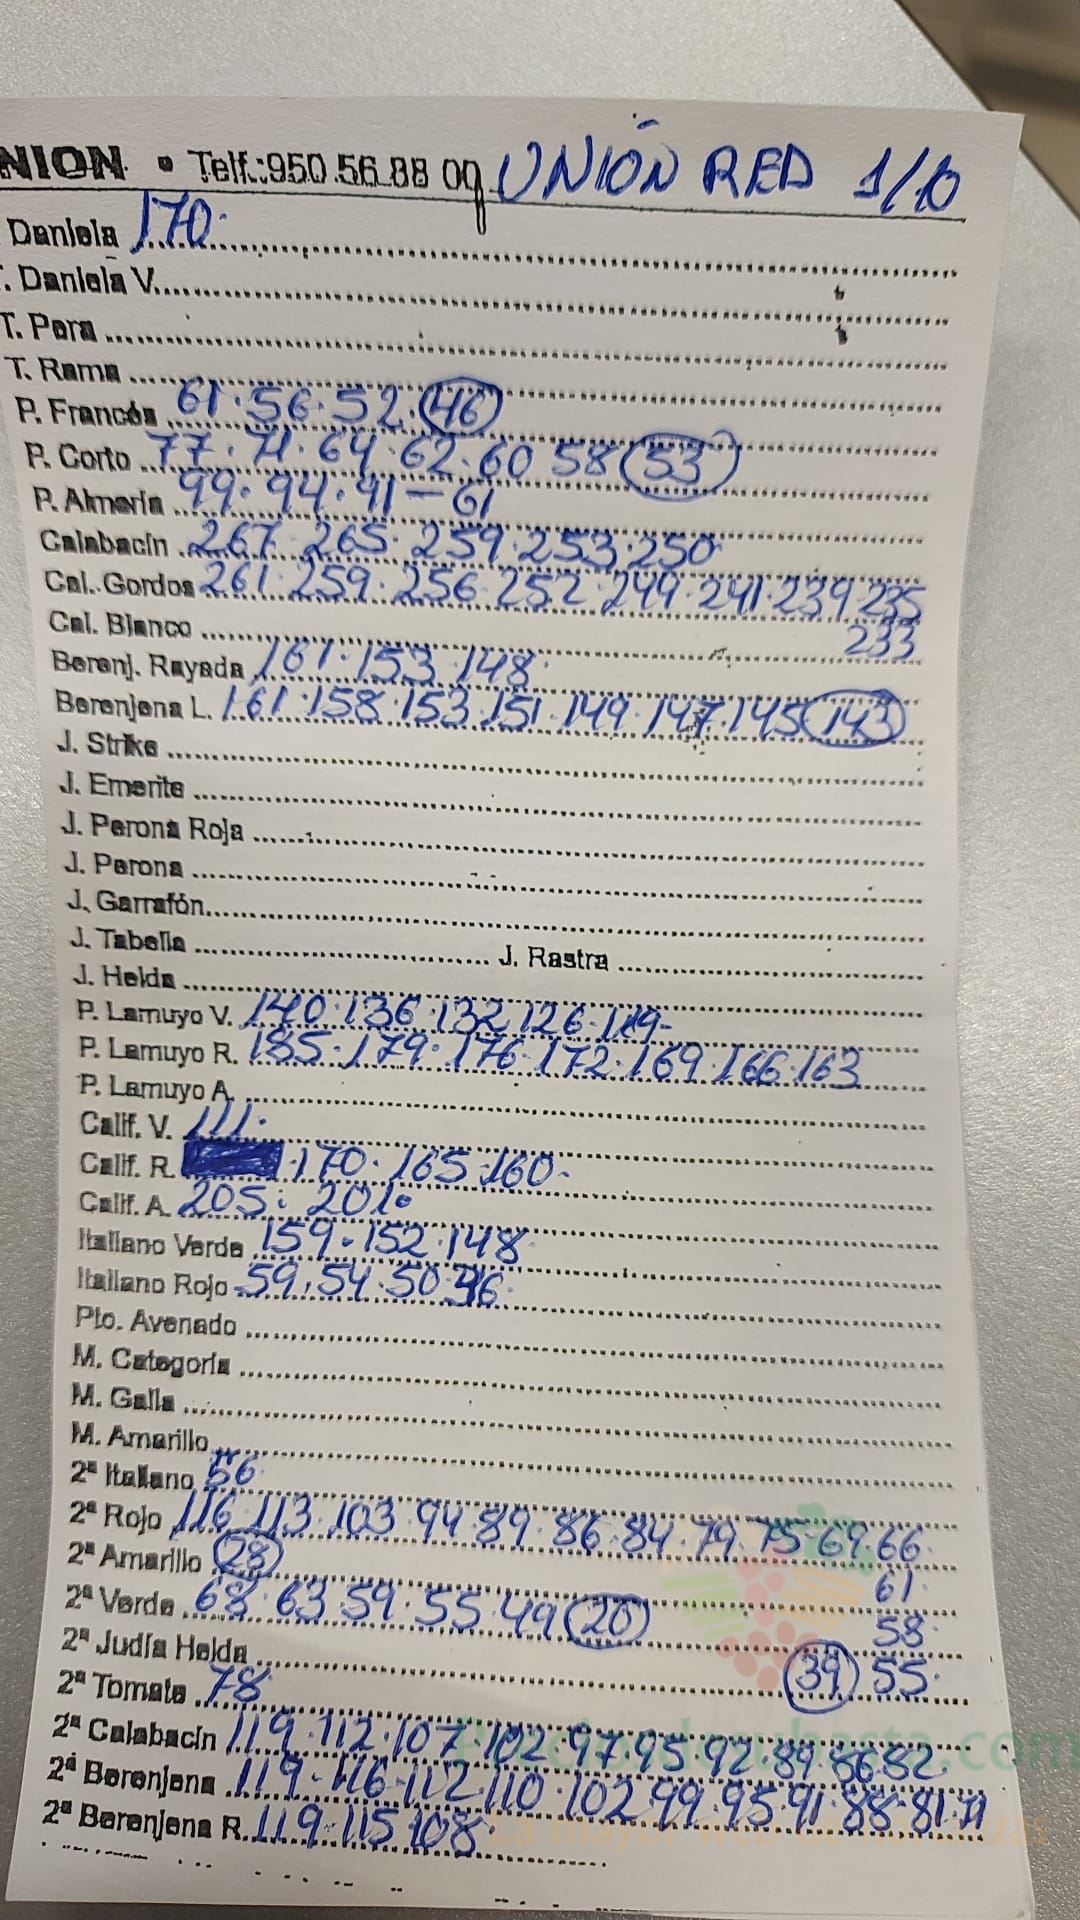 NION • Telf.:950.56.88 09 UNIÓN RED 1/10
Daniela 170.
. Daniela V.
T. Pera
T. Rama
P. Francés 61.56.52.46
P. Corto 77.71.64.62.60 58 53
P. Almería 99.94.91-61
Calabacín 267.265.259.253.250
Cal. Gordos 261.259.256.252.249.241.239.235
233
Cal. Blanco
Berenj. Rayada 161.153.148.
Berenjena L. 161.158.153.151.149.147.145 143
J. Strike
J. Emerite
J. Perona Roja
J. Perona
J. Garrafón
J. Tabella J. Rastra
J. Helda
P. Lamuyo V. 140.136.132.126.119-
P. Lamuyo R. 185.179.176.172.169.166.163
P. Lamuyo A.
Calif. V. 111.
Calif. R. .170.165.160-
Calif. A. 205. 201.
Italiano Verde 159.152.148
Italiano Rojo 59.54.50.46.
Pto. Avenado
M. Categoría
M. Galia
M. Amarillo
2ª Italiano 56
2ª Rojo 116.113.103.94.89.86.84.79.75.69.66.
61.
2ª Amarillo 28
58.
2ª Verde 68.63.59.55.49 20
39 55.
2ª Judía Helda
2ª Tomate 78
2ª Calabacín 119.112.107.102.97.95.92.89.86.82.
2ª Berenjena 119-116-112.110.102.99.95.91.88.81.71
2ª Berenjena R. 119.115.108